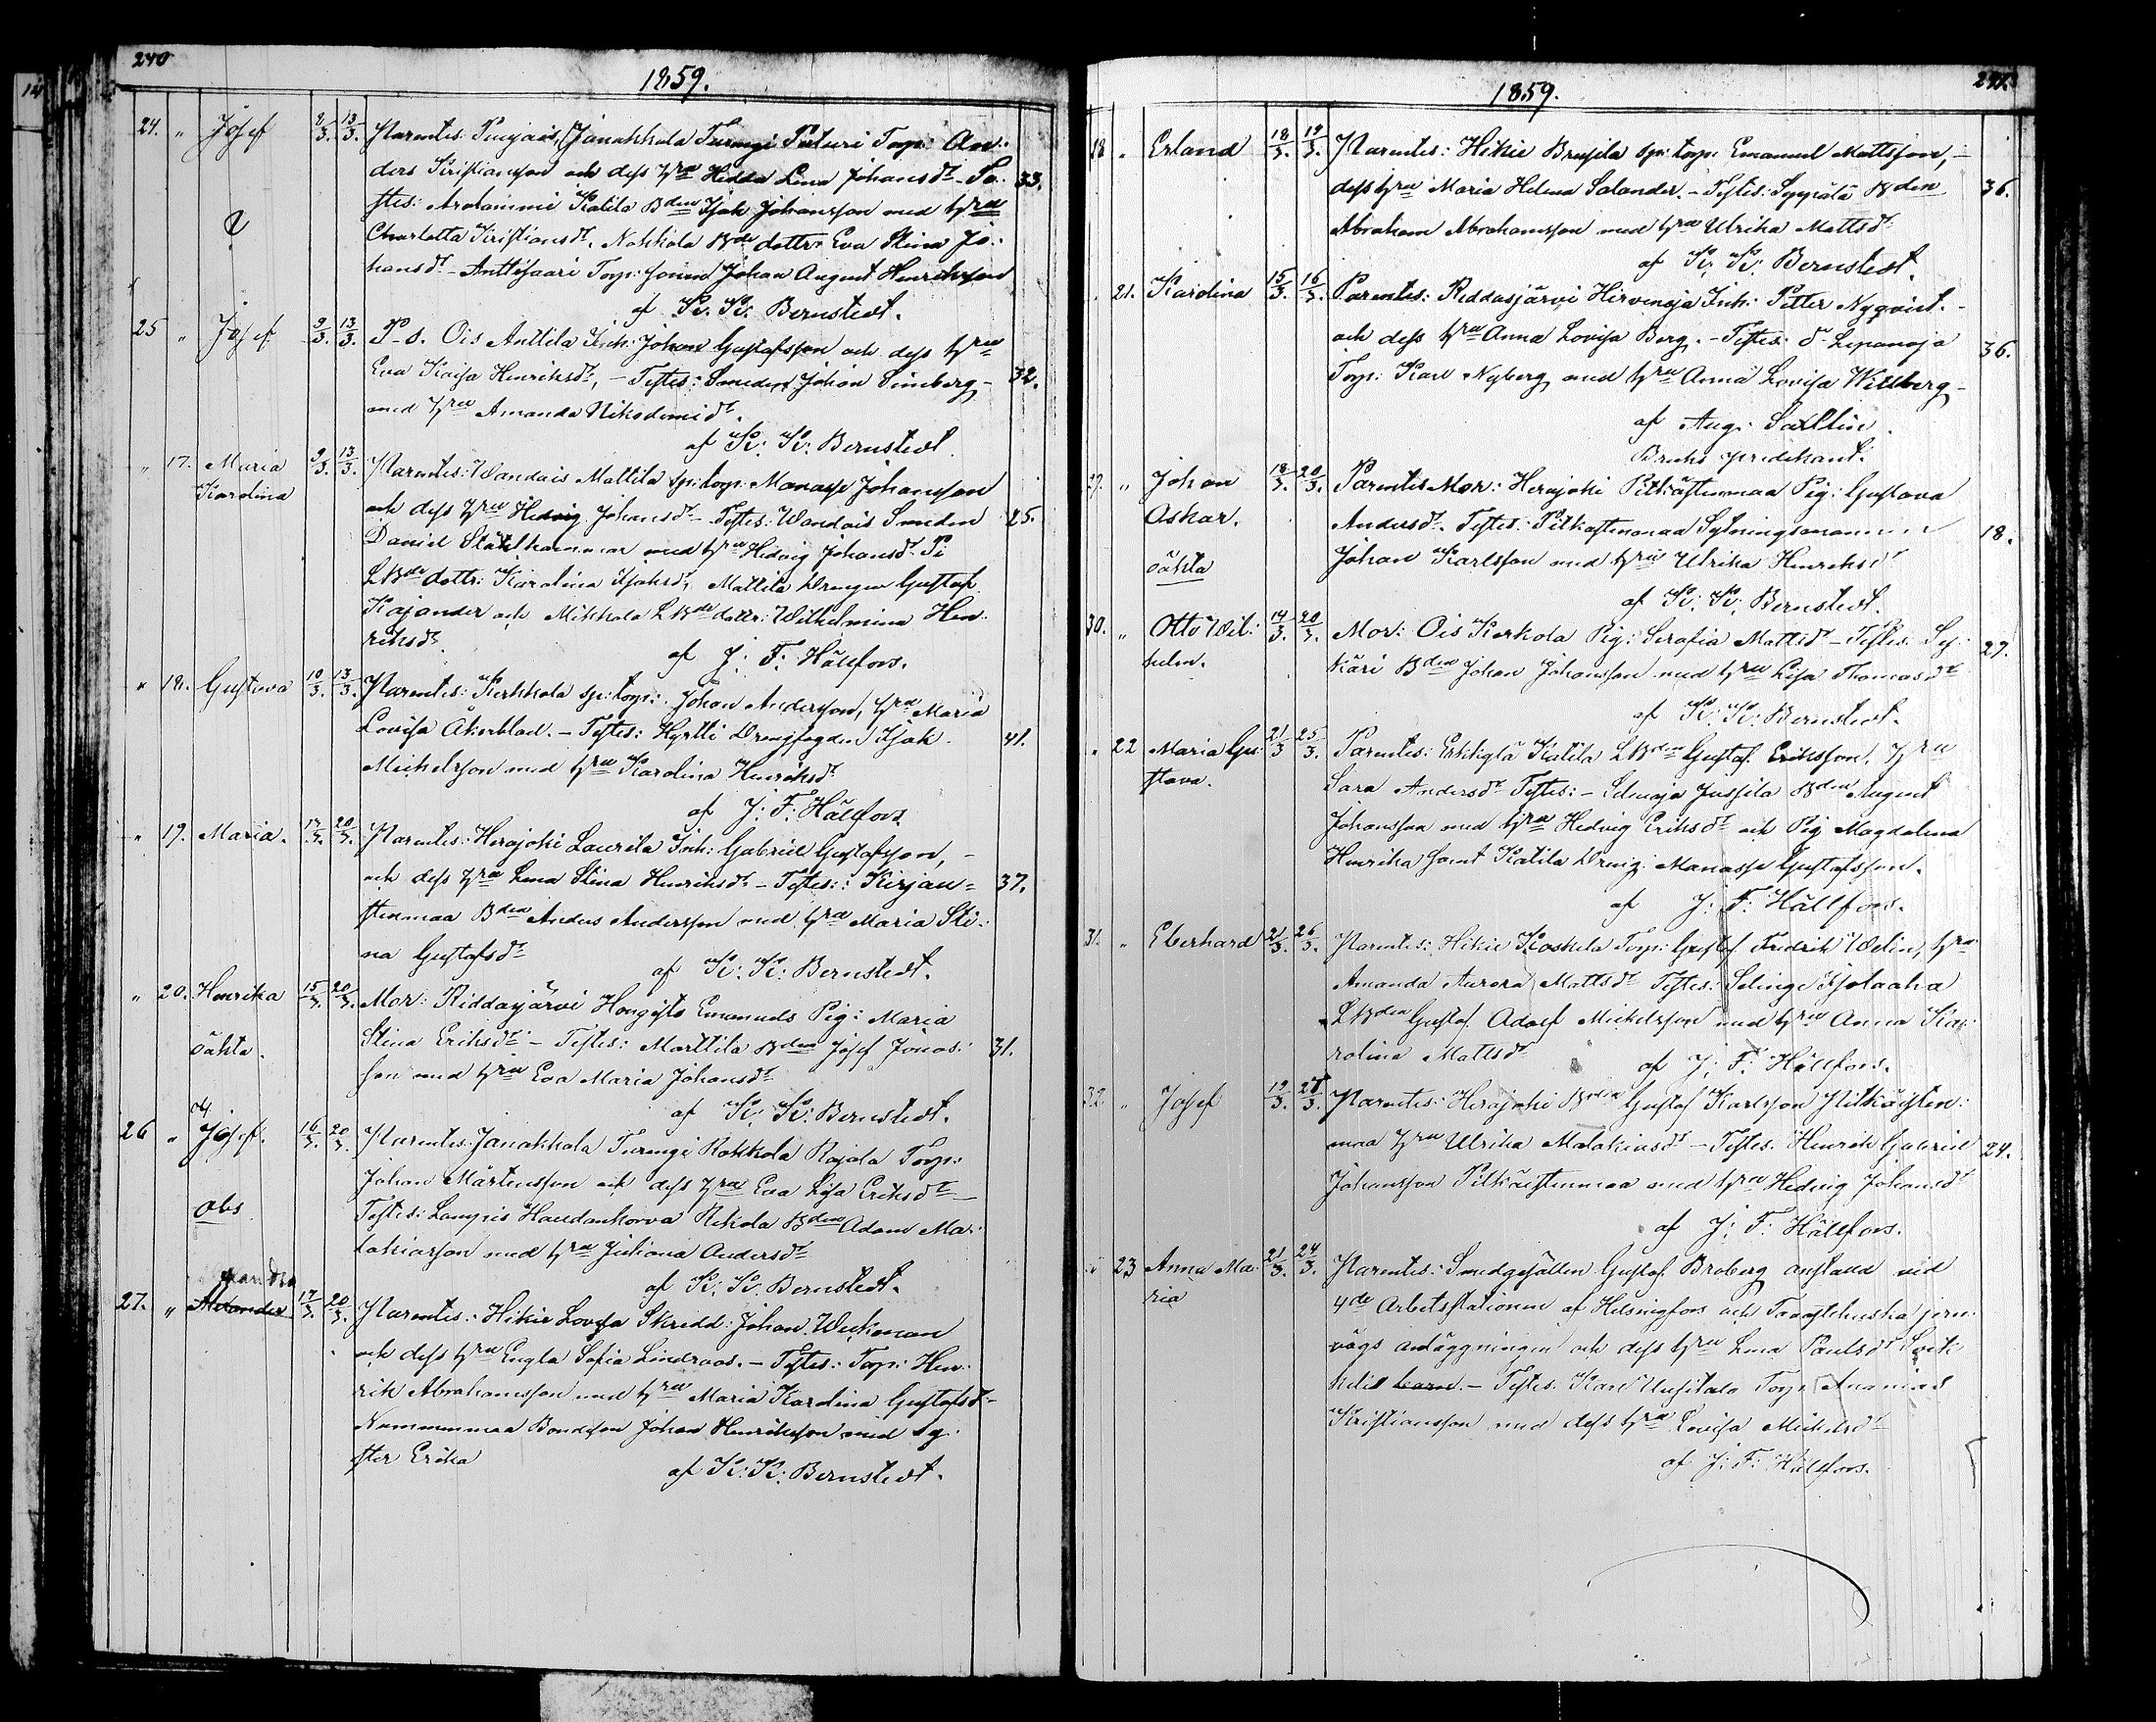 240
1859.
24. " Josef 8/3. 13/3. Parentes: Puujais, (Janakkala Turengi Puturi Torp: An-
ders Kristiansson och dess hru Hedda Lena Johansdr - Te- 33.
stes: Arolammi Katila Bden Isak Johansson med hru
Charlotta Kristiansdr, Nokkola Bde dottr Eva Stina Jo-
hansdr - Anttisaari Torp: sonen Johan August Henriksson
af K. K. Bernstedt.
25 " Josef 9/3. 13/3. P-s. Ois Anttila Inh: Johan Gustafsson och dess hru
Eva Kaisa Henriksdr, - Testes: Smeden Johan Limberg - 32.
med hru Amanda Nikodemidr.
af K: K: Bernstedt.
" 17. Maria 9/3. 13/3. Parentes: Wandais Mattila sp: torp: Manasse Johansson
Karolina
och dess hru Hedvig Johansdr - Testes: Wandais Smeden 25.
Daniel Stålhammar med hru Hedvig Johansdr
LBde dottr: Karolina Isaksdr, Mattila Drengen Gustaf
Kajander och Mikkola LBde dottr: Wilhelmina Hen-
riksdr.
af J: F: Hällfors.
" 18. Gustava 10/3. 13/3. Parentes: Kerkkola sp: torp: Johan Andersson, hru Maria
Lovisa Åkerblad. - Testes: Hyrtti Drengfogden Isak 41.
Michelsson med hru Karolina Henriksdr
af J: F: Hällfors.
" 19. Maria. 14/3. 20/3. Parentes: Herajoki Laurila Inh: Gabriel Gustafsson, -
och dess hru Lena Stina Henriksdr - Testes: Kirjau= 37.
stenmaa Bden Anders Andersson med hru Maria Sti-
na Gustafsdr
af K: K: Bernstedt.
" 20. Henrika 15/3. 20/3. Mor: Riddasjärvi Hongisto Emanuels Pig: Maria
oäkta.
Stina Eriksdr - Testes: Marttila Bden Josef Jonas- 31.
son med hru Eva Maria Johansdr
af K: K: Bernstedt.
26 " Josef. 16/3. 20/3. Parentes: Janakkala Turengi Rokkola Rajala Torp:
Johan Mårtensson och dess hru Eva Lisa Eriksdr -
obs
Testes: Lampis Haudankorva Rekola Bden Adam Ma-
lakiasson med hru Juliana Andersdr
af K: K: Bernstedt.
xandra
27. " Alexander 17/3. 20/3. Parentes: Hikie Lovisa Skredd: Johan Weckman
och dess hru Engla Sofia Lindroos. - Testes: Torp: Hen-
rik Abrahamsson med hru Maria Karolina Gustafsdr
Nummenmaa Bondeson Johan Henriksson med sy-
ster Erika
af K: K: Bernstedt.
241.
1859.
28. " Erland 18/3. 19/3. Parentes: Hikie Brusila sp: torp: Emanuel Mattsson, -
dess hru Maria Helena Salander. - Testes: Syrjälä Bden 36.
Abraham Abrahamsson med hru Ulrika Mattsdr
af K: K: Bernstedt.
" 21. Karolina 15/3. 16/3. Parentes: Riddasjärvi Hirvenoja Inh: Petter Nyqvist. -
och dess hru Anna Lovisa Berg. - Testes: dr Lepanoja 36.
Torp: Karl Nyberg med hru Anna Lovisa Willberg -
af Aug: Sallin.
Bruks predikant.
29. " Johan 18/3. 20/3. Parentes Mor: Herajoki Pitkästenmaa Pig: Gustava
Oskar.
Andersdr. Testes: Pitkästenmaa Sytningsmannen 18.
oäkta
Johan Karlsson med hru Ulrika Henriksdr
af K: K: Bernstedt.
30. " Otto Wil- 14/3. 20/3. Mor: Ois Kerkola Pig: Serafia Mattsdr - Testes:
helm. 27.
Bden Johan Johansson med hru Lisa Thomasdr
af K: K: Bernstedt.
" 22 Maria Gu- 21/3 25/3. Parentes: Erkkylä Katila LBden Gustaf Eriksson, hru
stava.
Sara Andersdr Testes: - Selinoja Jussila Bden August
Johansson med hru Hedvig Eriksdr och Pig Magdalena
Henrika samt Katila Dreng: Manasse Gustafsson.
af J: F: Hällfors.
31. " Eberhard 21/3. 26/3. Parentes: Hikie Koskela Torp: Gustaf Fredrik Welin, hru
Amanda Aurora Mattsdr Testes: Selinge Isolaaka
LBden Gustaf Adolf Michelsson med hru Anna Ka-
rolina Mattsdr
af J: F: Hällfors.
32. " Josef 19/3. 27/3. Parentes: Herajoki Bden Gustaf Karlsson Pitkästen-
maa hru Ulrika Malakiasdr - Testes: Henrik Gabriel 24.
Johansson Pitkästenmaa med hru Hedvig Johansdr
af J: F: Hällfors.
" 23 Anna Ma- 21/3. 24/3. Parentes: Smedgesällen Gustaf Broberg anställd vid
ria
4de Arbetsstationen af Helsingfors och Tavastehuska jern-
vägs anläggningen och dess hru Lena Paulsdr
barn. - Testes: Karl Uusitalo Torp: Ananias
Kristiansson med dess hru Lovisa Michelsdr
af J: F: Hällfors.